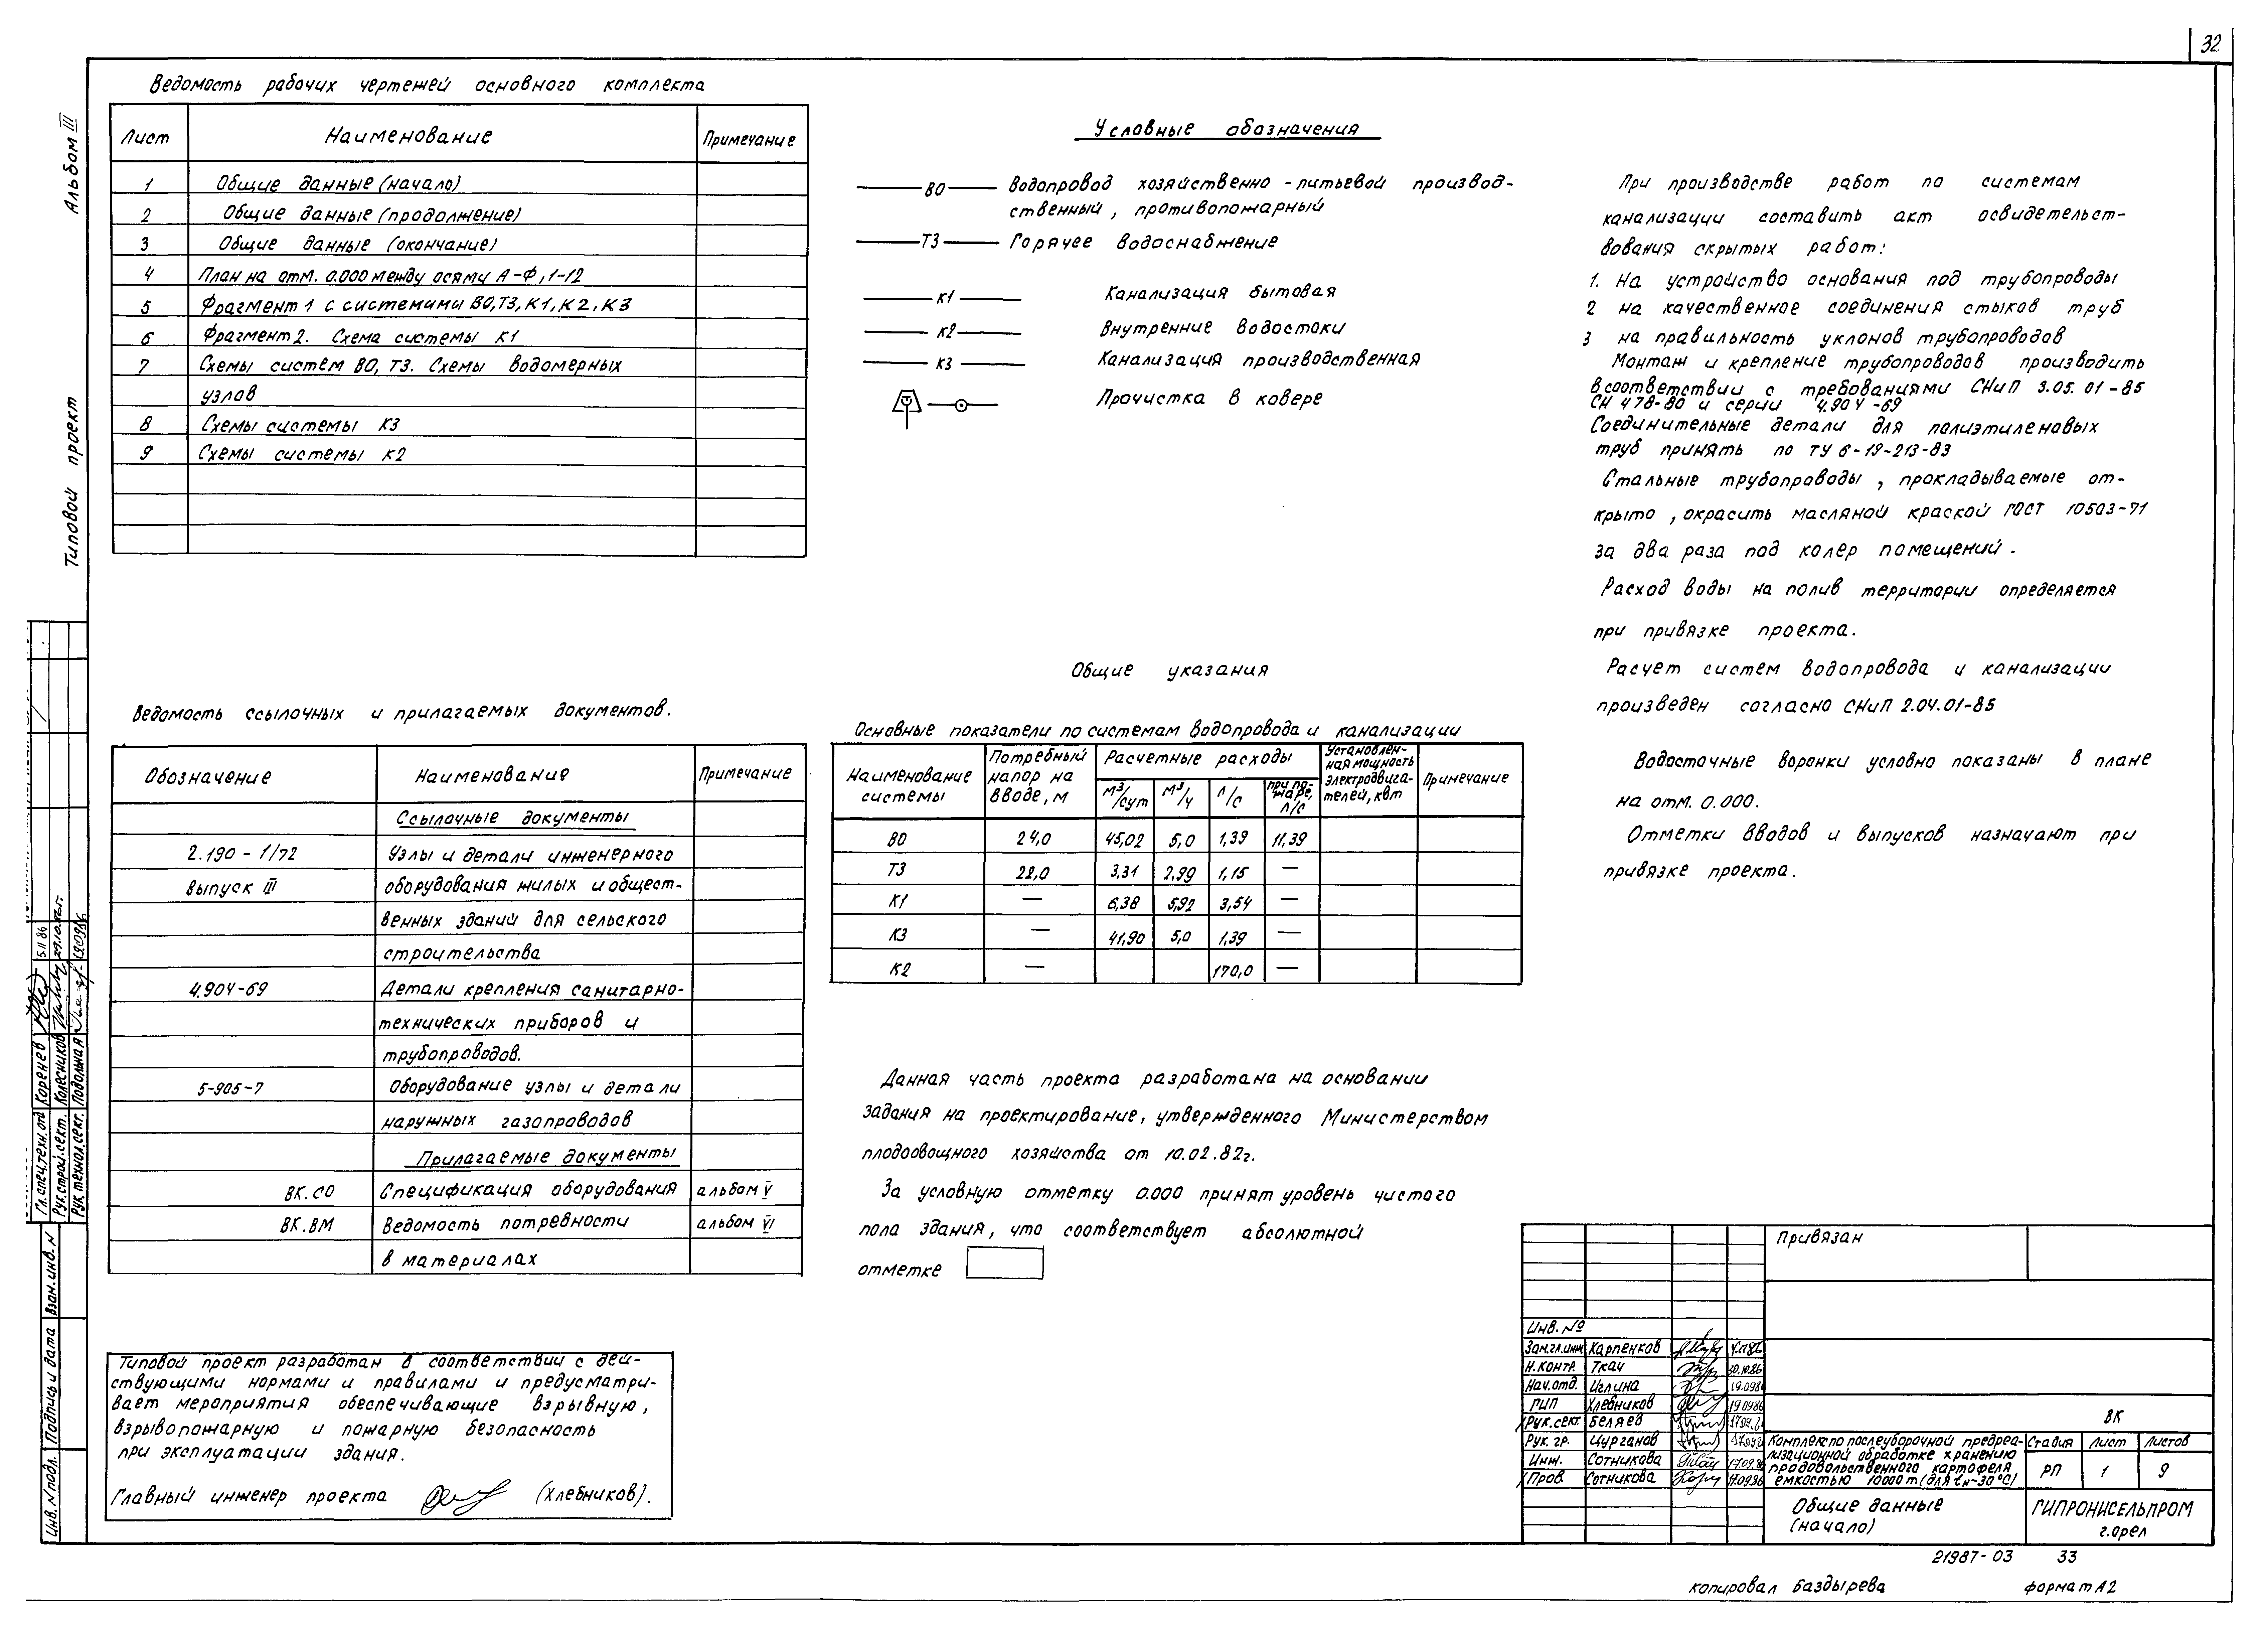 32
Альбом III
Типовой проект
Ведомость рабочих чертежей основного комплекта
Лист Наименование Примечание
1 Общие данные (начало)
2 Общие данные (продолжение)
3 Общие данные (окончание)
4 План на отм. 0.000 между осями А-Ф, 1-12
5 Фрагмент 1 с системами В0, Т3, К1, К2, К3
6 Фрагмент 2. Схема системы К1
7 Схемы систем В0, Т3. Схемы водомерных
узлов
8 Схемы системы К3
9 Схемы системы К2
Ведомость ссылочных и прилагаемых документов.
Обозначение Наименование Примечание
Ссылочные документы
2.190 - 1/72 Узлы и детали инженерного
выпуск III оборудования жилых и общест-
венных зданий для сельского
строительства
4.904-69 Детали крепления санитарно-
технических приборов и
трубопроводов.
5-905-7 Оборудование узлы и детали
наружных газопроводов
Прилагаемые документы
ВК.СО Спецификация оборудования альбом V
ВК.ВМ Ведомость потребности альбом VI
в материалах
Типовой проект разработан в соответствии с дей-
ствующими нормами и правилами и предусматри-
вает мероприятия обеспечивающие взрывную,
взрывопожарную и пожарную безопасность
при эксплуатации здания.
Главный инженер проекта (Хлебников).
Условные обозначения
В0 Водопровод хозяйственно - питьевой производ-
ственный, противопожарный
Т3 Горячее водоснабжение
К1 Канализация бытовая
К2 Внутренние водостоки
К3 Канализация производственная
Прочистка в ковере
Общие указания
Основные показатели по системам водопровода и канализации
Наименование системы Потребный напор на вводе, м Расчетные расходы Установлен-ная мощность электродвига-телей, квт Примечание
м³/сут м³/ч л/с при по-жаре, л/с
В0 24,0 45,02 5,0 1,39 11,39
Т3 22,0 3,31 2,99 1,15 —
К1 — 6,38 5,92 3,54 —
К3 — 41,90 5,0 1,39 —
К2 — 170,0 —
Данная часть проекта разработана на основании
задания на проектирование, утвержденного Министерством
плодоовощного хозяйства от 10.02.82г.
За условную отметку 0.000 принят уровень чистого
пола здания, что соответствует абсолютной
отметке
При производстве работ по системам
канализации составить акт освидетельст-
вования скрытых работ:
1. На устройство основания под трубопроводы
2 на качественное соединения стыков труб
3 на правильность уклонов трубопроводов
Монтаж и крепление трубопроводов производить
в соответствии с требованиями СНиП 3.05.01-85
СН 478-80 и серии 4.904-69
Соединительные детали для полиэтиленовых
труб принять по ТУ 6-19-213-83
Стальные трубопроводы, прокладываемые от-
крыто, окрасить масляной краской ГОСТ 10503-71
за два раза под колер помещений.
Расход воды на полив территории определяется
при привязке проекта.
Расчет систем водопровода и канализации
произведен согласно СНиП 2.04.01-85
Водосточные воронки условно показаны в плане
на отм. 0.000.
Отметки вводов и выпусков назначают при
привязке проекта.
Гл.спец.техн.отд Коренев 5.11.86
Рук.строй.сект. Колесников
Рук.технол.сект. Подольная
Взам.инв.N
Подпись и дата
Инв.N подл.
Привязан
Инв. №
Зам.гл.инж Карпенков
Н.контр. Ткач 30.10.86
Нач.отд. Иглина 19.0986
ГИП Хлебников 19.0986
Рук.сект. Беляев
Рук. гр. Цурганов
Инж. Сотникова
Пров. Сотникова 17.0986
ВК
Комплекс по послеуборочной предреа-
лизационной обработке хранению
продовольственного картофеля
емкостью 10000 т (для tн-30°С)
Стадия Лист Листов
РП 1 9
Общие данные
(начало)
ГИПРОНИСЕЛЬПРОМ
г.Орел
21987-03 33
копировал Баздырева формат А2